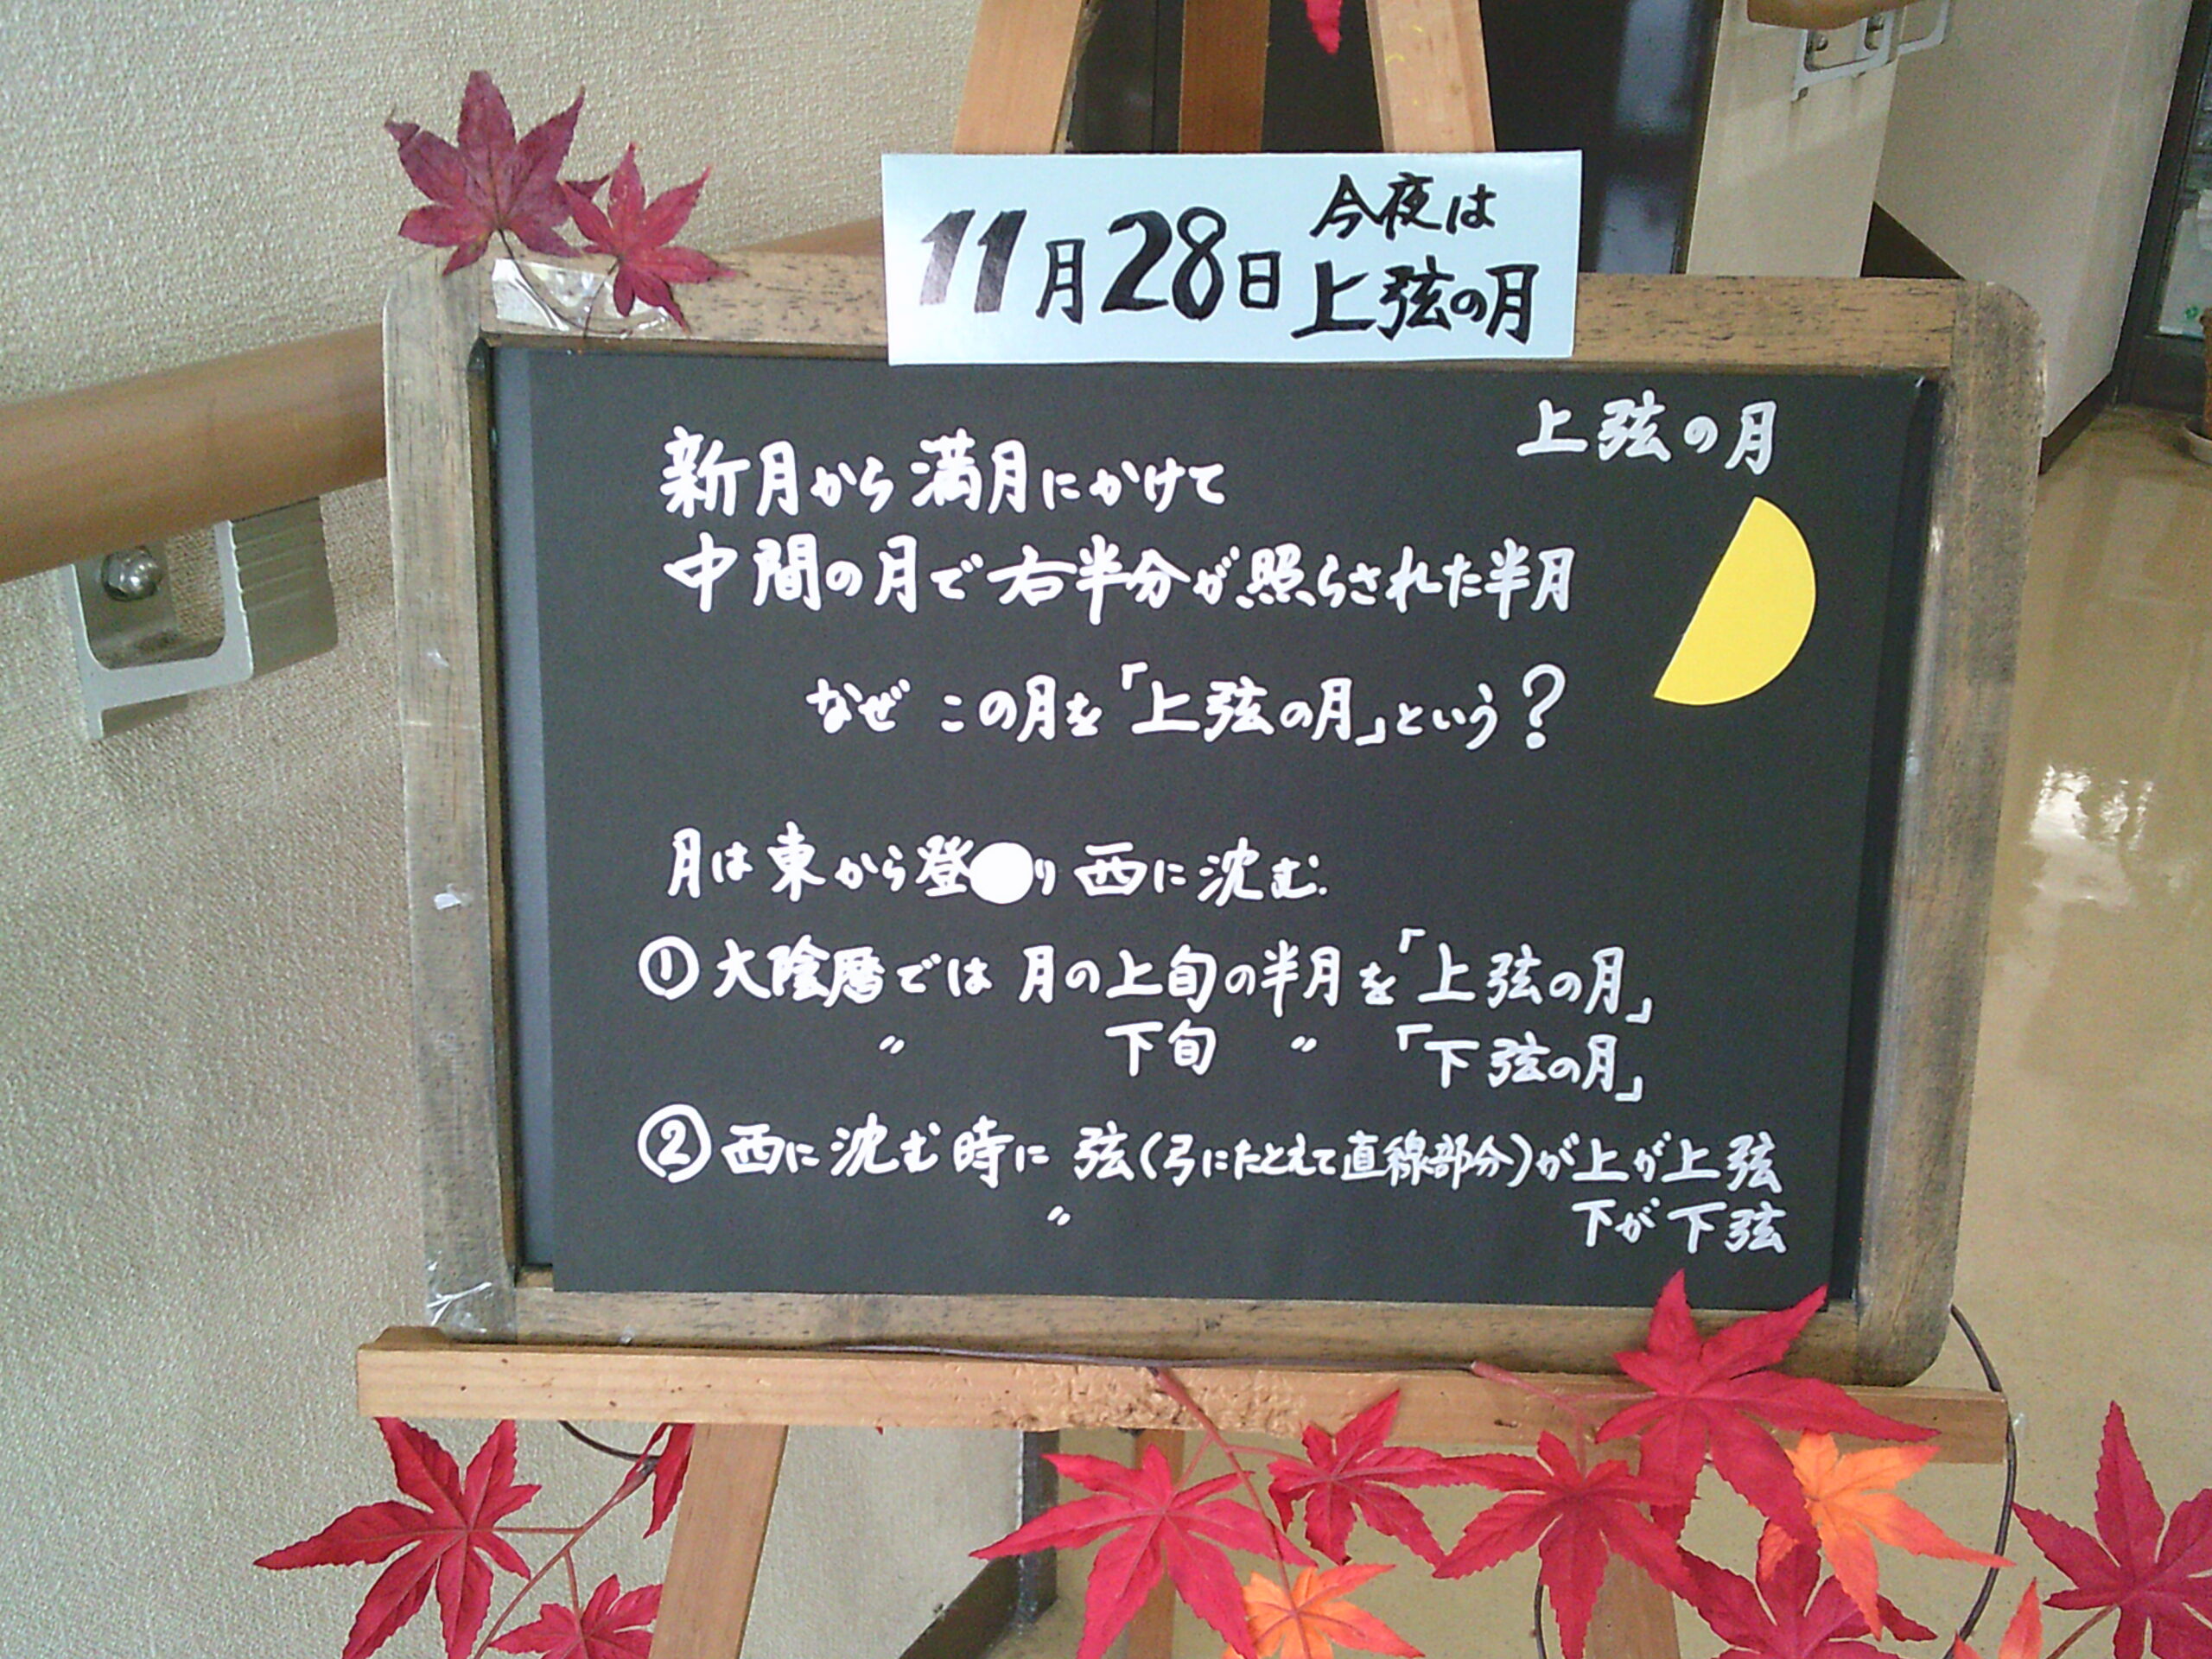 11月28日 今夜は
上弦の月
上弦の月
新月から満月にかけて
中間の月で右半分が照らされた半月
なぜ この月を「上弦の月」という?
月は東から登り西に沈む.
①大陰暦では 月の上旬の半月を「上弦の月」
〃 下旬 〃 「下弦の月」
②西に沈む時に 弦(弓にたとえて直線部分)が上が上弦
〃 下が下弦